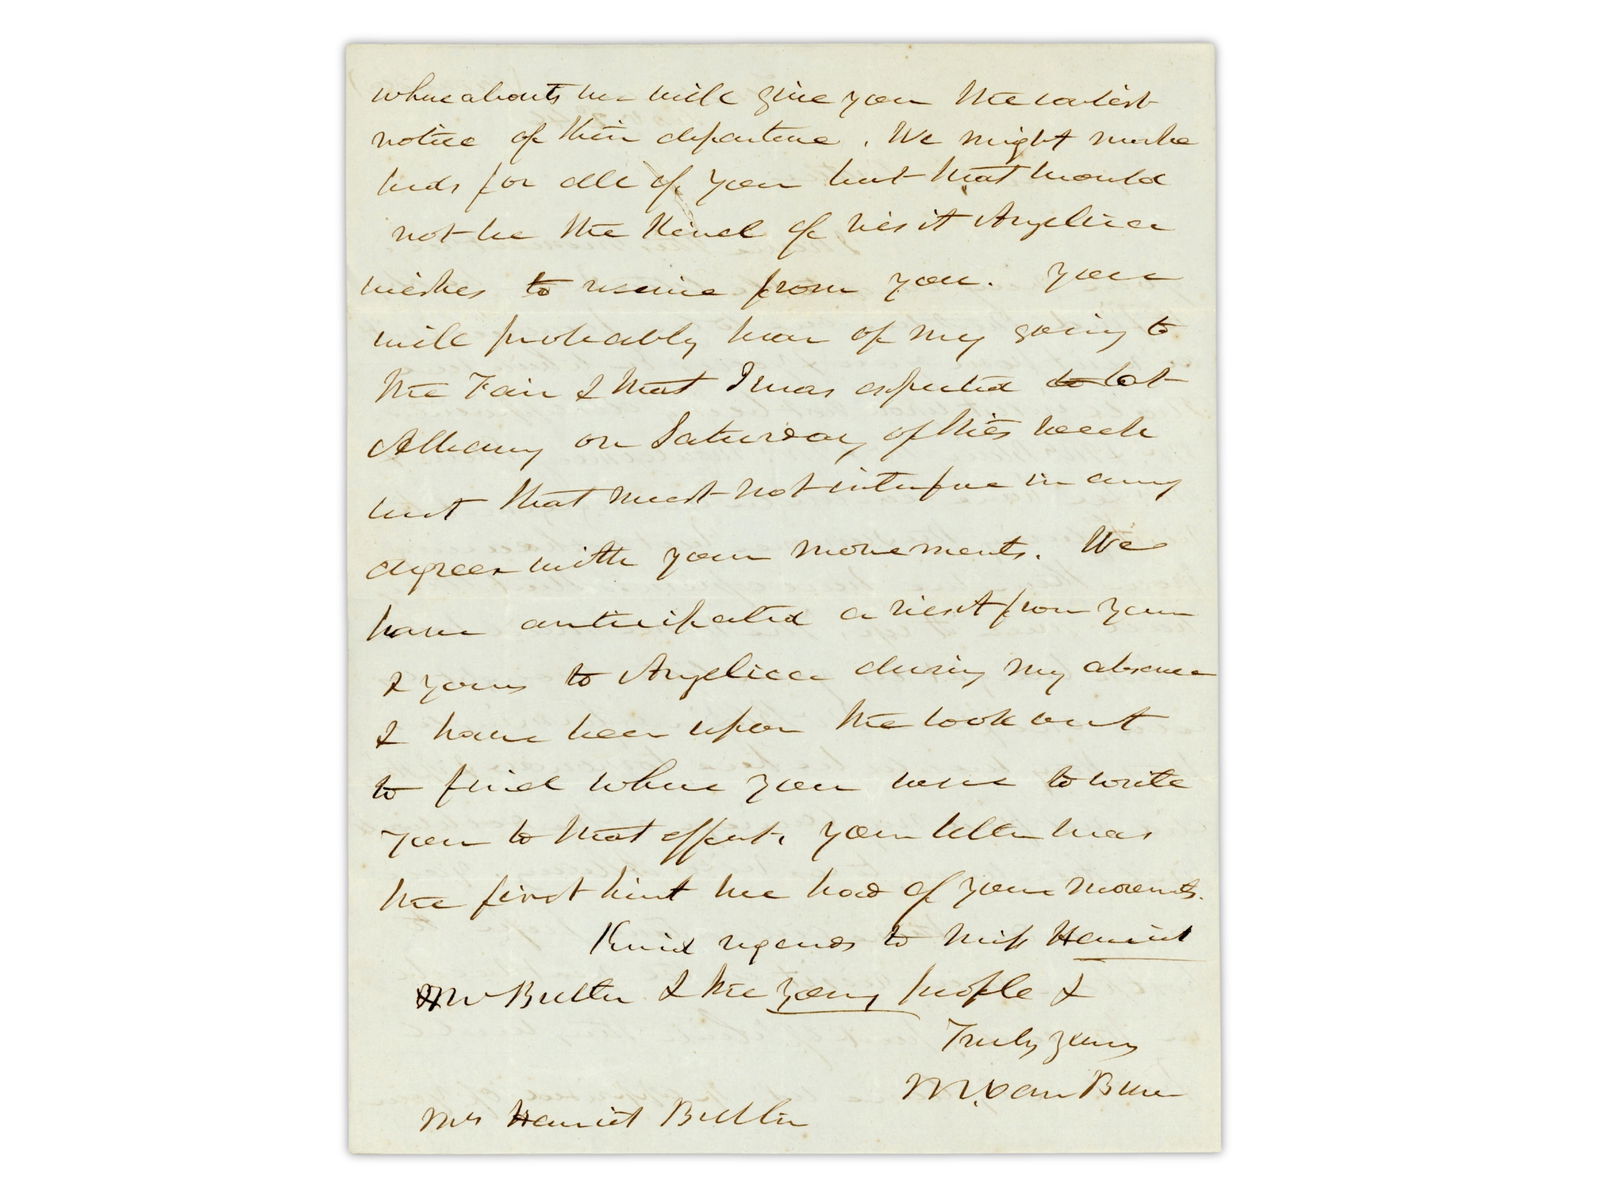 whereabouts we will give you the earliest
notice of their departure. We might make
beds for all of you but that would
not be the Kind of visit Angelica
wishes to receive from you. You
will probably hear of my going to
the Fair & that I was expected to be at
Albany on Saturday of this week
but that must not interfere in any
degree with your movements. We
have anticipated a visit from you
& yours to Angelica during my absence
& have been upon the look out
to find where you were to write
you to that effect. your letter was
the first hint we had of your movements.
Kind regards to Miss Harriet
Mr Butler & the young people &
Truly yours
M. Van Buren
Mrs Harriet Butler